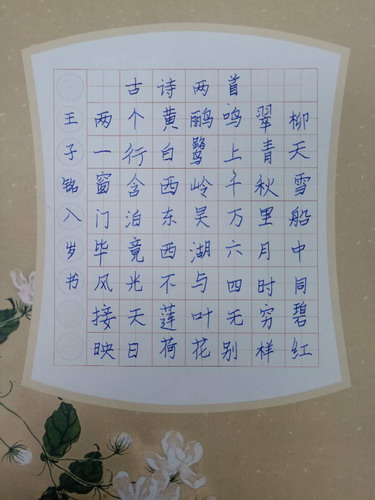 古诗两首
两个黄鹂鸣翠柳
一行白鹭上青天
窗含西岭千秋雪
门泊东吴万里船
毕竟西湖六月中
风光不与四时同
接天莲叶无穷碧
映日荷花别样红
王子铭八岁书